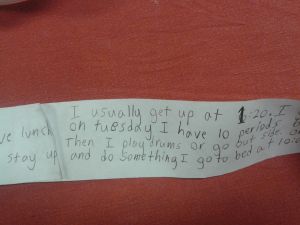 I usually get up at 1:20. I
ve lunch on tuesday I have 10 periods
Then I play drums or go out side.
stay up and do something I go to bed at 10: